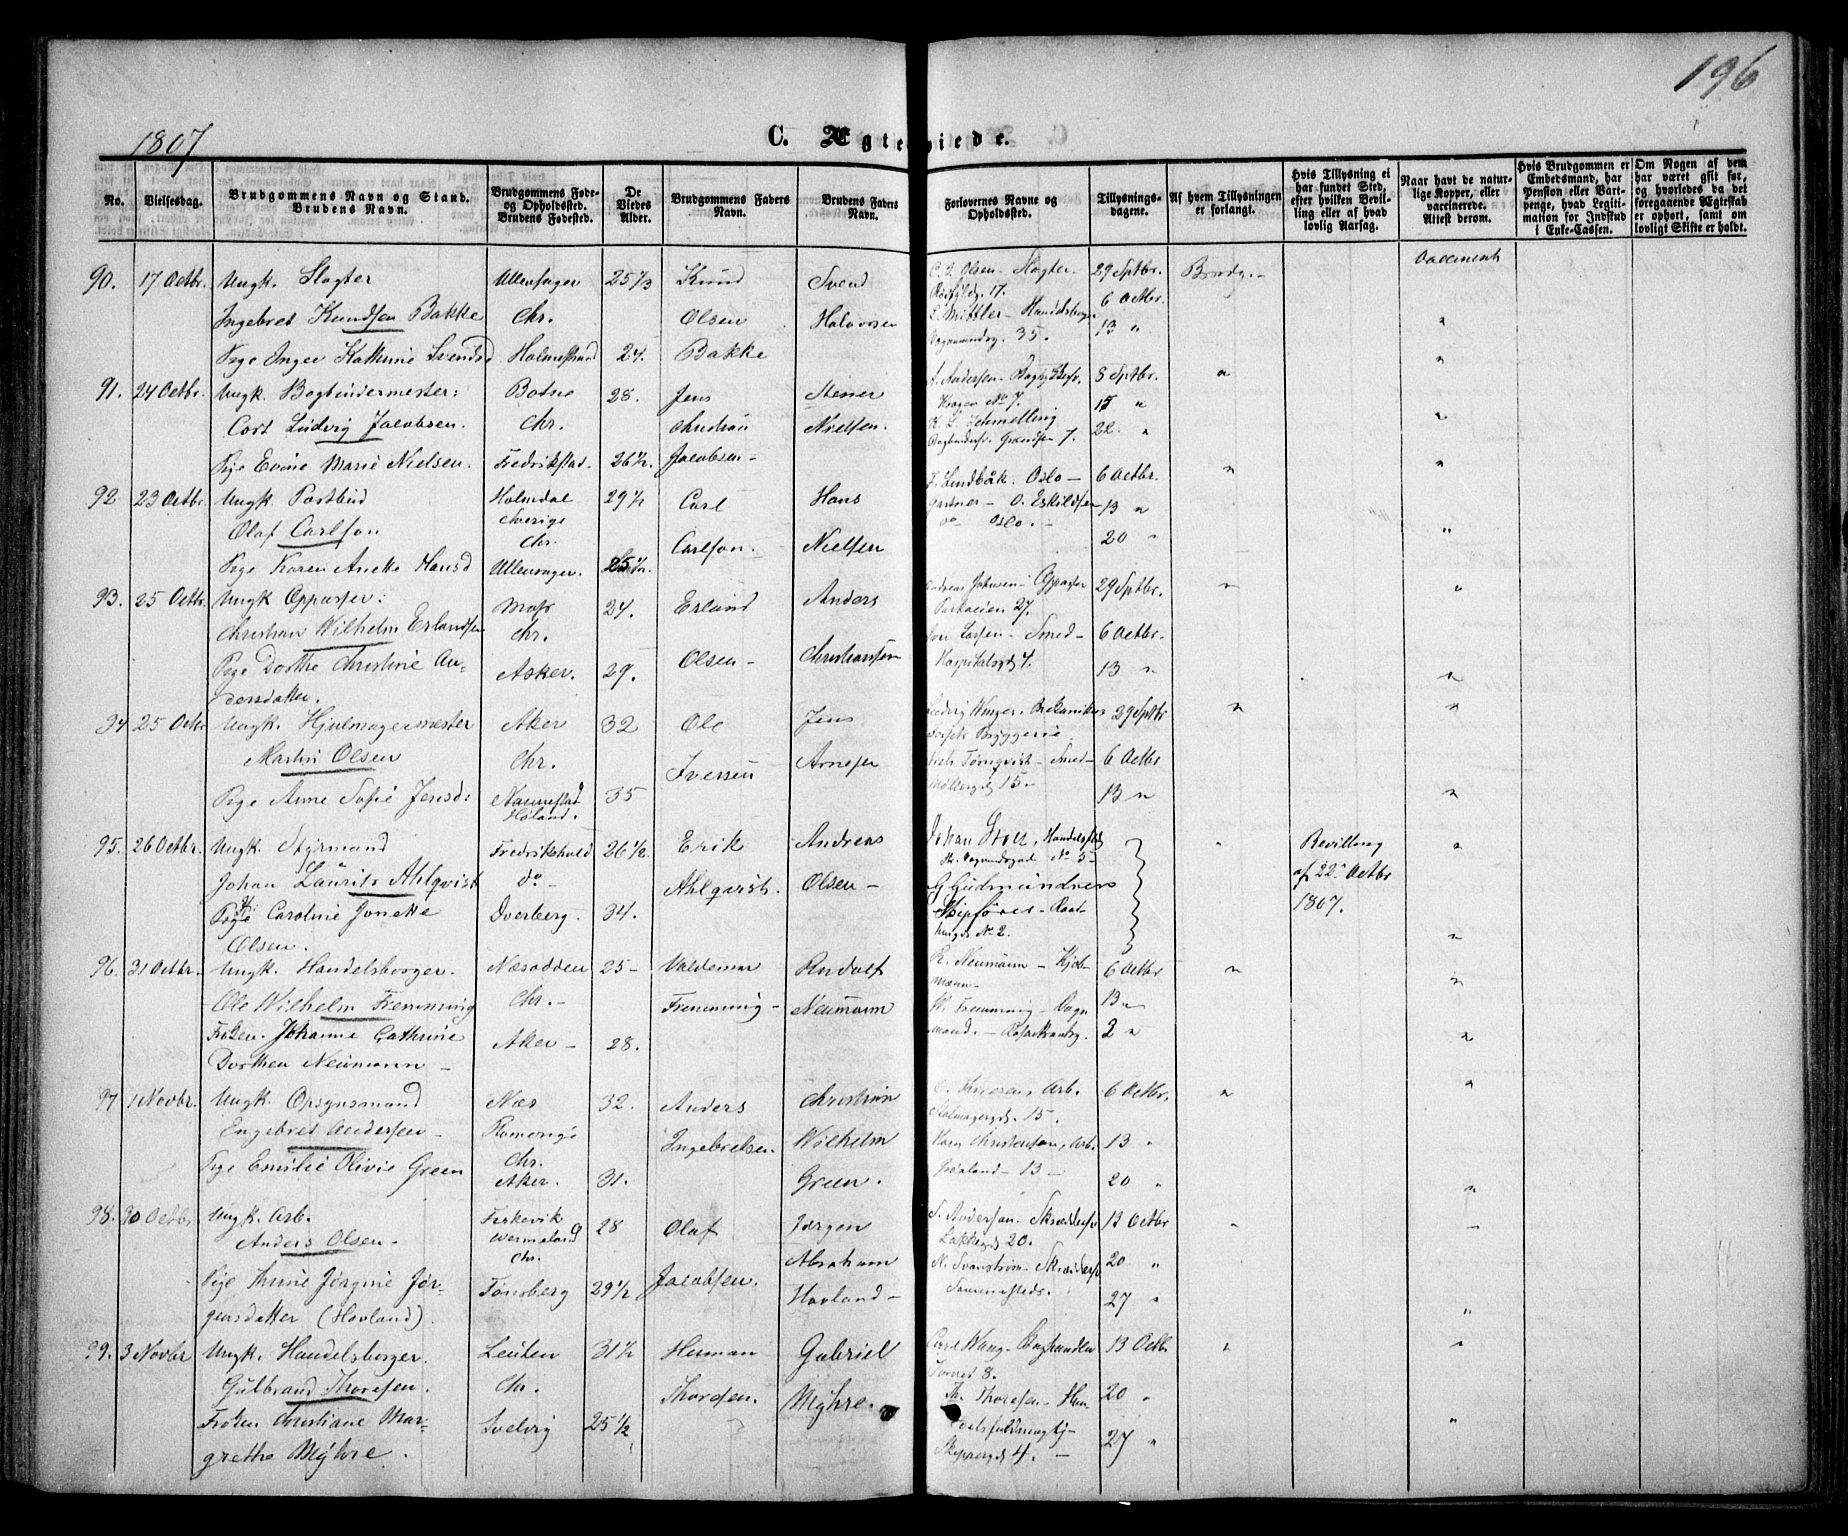 196
1867
C. Ægteviede.
No.
Vielsesdag.
Brudgommens Navn og Stand.
Brudens Navn.
Brudgommens Føde-
og Opholdssted.
Brudens Fødested.
De
Viedes
Alder.
Brudgommens Faders
Navn.
Brudens Faders
Navn.
Forlovernes Navne og
Opholdssted.
Tillysnings-
dagene.
Af hvem Tillysningen
er forlangt.
Hvis Tillysning ei
har fundet Sted,
efter hvilken Bevil-
ling eller af hvad
lovlig Aarsag.
Naar havt de natur-
lige Kopper, eller
vaccinerede.
Attest derom.
Hvis Brudgommen er
Embedsmand, har
Pension eller Vart-
penge, hvad Legiti-
mation for Indskud
i Enke-Cassen.
Om Nogen af dem
har været gift før,
og hvorledes da det
foregaaende Ægteskab
er ophørt, samt om
lovligt Skifte er holdt.
90. 17 Octbr. Ungk. Slagter Ullensager 25 1/3 Knud Svend C. J. Olsen - Slagter - 29 Sptbr. Brudg.
17. 6 Octbr.
Ingebret Knudsen Bakke Chr. Olsen Halvorsen 13 "
35.
Pige Inger Kathrine Svendsd Holmestrand 24. Bakke
91. 24 Octbr. Ungk. Bogbindermester: Botne 28. Jens Stener A. Andersen - 8 Sptbr. "
No 7. 15 "
Cort Ludvig Jacobsen. Chr. Christian Nielsen. K. L. Schmelling 22. "
Grændsen 7.
Pige Evine Marie Nielsen. Fredrikstad - 26 1/2. Jacobsen -
92 23 Octbr. Ungk Postbud Holmdal 29 1/2 Carl Hans F. Lindbäk. Oslo - 6 Octbr. "
Sverige Gartner - O. Eskildsen 13 "
Olaf Carlson Chr. Carlson. Nielsen do Oslo. - 20 "
Pige Karen Anette Hansd Ullensager. 25 1/2.
93. 25 Octbr. Ungk Oppasser: Moss 24. Erland Anders Johnsen - Oppasser 29 Sptbr. "
27.
Christian Wilhelm Erlandsen Chr. Larsen - Smed - 6 Octbr.
Pige Dorthe Christine An- Asker. 29. Olsen - Christiansen Hospitalsgd 4. 13 "
dersdatter.
94 25 Octbr Ungk. Hjulmagermester Aker 32 Ole Jens Ludvig Winger. 29 Sptbr "
Bryggerie
Martin Olsen Chr. Iversen Arnesen Törnqvist - Smed - 6 Octbr
Møllergd 15 - 13 "
Pige Anne Sofie Jensd: Nannestad 35
Høland.
95. 26 Octbr. Ungk. Styrmand Fredrikshald 26 1/2 Erik Andreas Johan " Bevilling
No 5
Johan Laurits Ahlqvist do - Ahlqvist. Olsen - G Gudmundsen af 22. Octbr
Pige Caroline Jonette Dverberg. 34. Skipfører - Raad- 1867.
Olsen. husgd No 2.
96. 31 Octbr. Ungk. Handelsborger. Næsodden 25 - Valdemar Rudolf R. Neumann - Kjøb- 6 Octbr "
mann -
Ole Wilhelm Fremming Chr. - Fremming - Neumann W. Fremming - Vogn 13 "
Frøken. Johanne Cathrine Aker - 28. mand. - 2 "
Dorthea Neumann -
97 1 Novbr. Ungk. Opsynsmand Næs 32. Anders Christian Arb. 6 Octbr. "
15.
Engebret Andersen - Romerige Ingebretsen Wilhelm Christensen, Arb. 13 "
Chr.
Pige Emilie Olivie Green Aker. 31. Green. Grønland - 13 - 20 "
98. 30 Octbr. Ungk. Arb. 28 Olaf Jørgen S. Andersson. Skrædersv 13 Octbr
Anders Olsen - Wermeland Lakkegd 20.
Chr. Abraham N. Svanström - Skrædersv 20 "
Pige Thrine Jørgine Jør- Tønsberg 29 1/2 Jacobsen. Hovland - Sammesteds. 27 "
gensdatter (Hovland).
99. 3 Novbr Ungk. Handelsborger. Leuten 31 1/2 Herman Gabriel Wang - 13 Octbr. "
8.
Gulbrand Thoresen. Chr. Thoresen. Myhre. Th. Thoresen - 20 "
Frøken Christiane Mar- Svelvig 25 1/2 27 "
grethe Myhre. 4. -